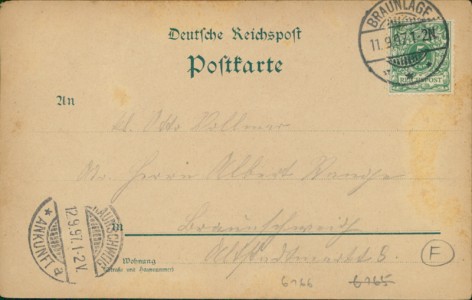 Deutsche Reichspost
Postkarte
BRAUNLAGE
11.9.97.1-2N.
REICHSPOST
An
H. Otto Vollmer
Herrn Albert
BRAUNSCHWEIG
12.9.97.1-2V.
* ANKUNFT * a
in Braunschweig
Altstadtmarkt 8.
Wohnung
(Straße und Hausnummer)
F
6166 6165